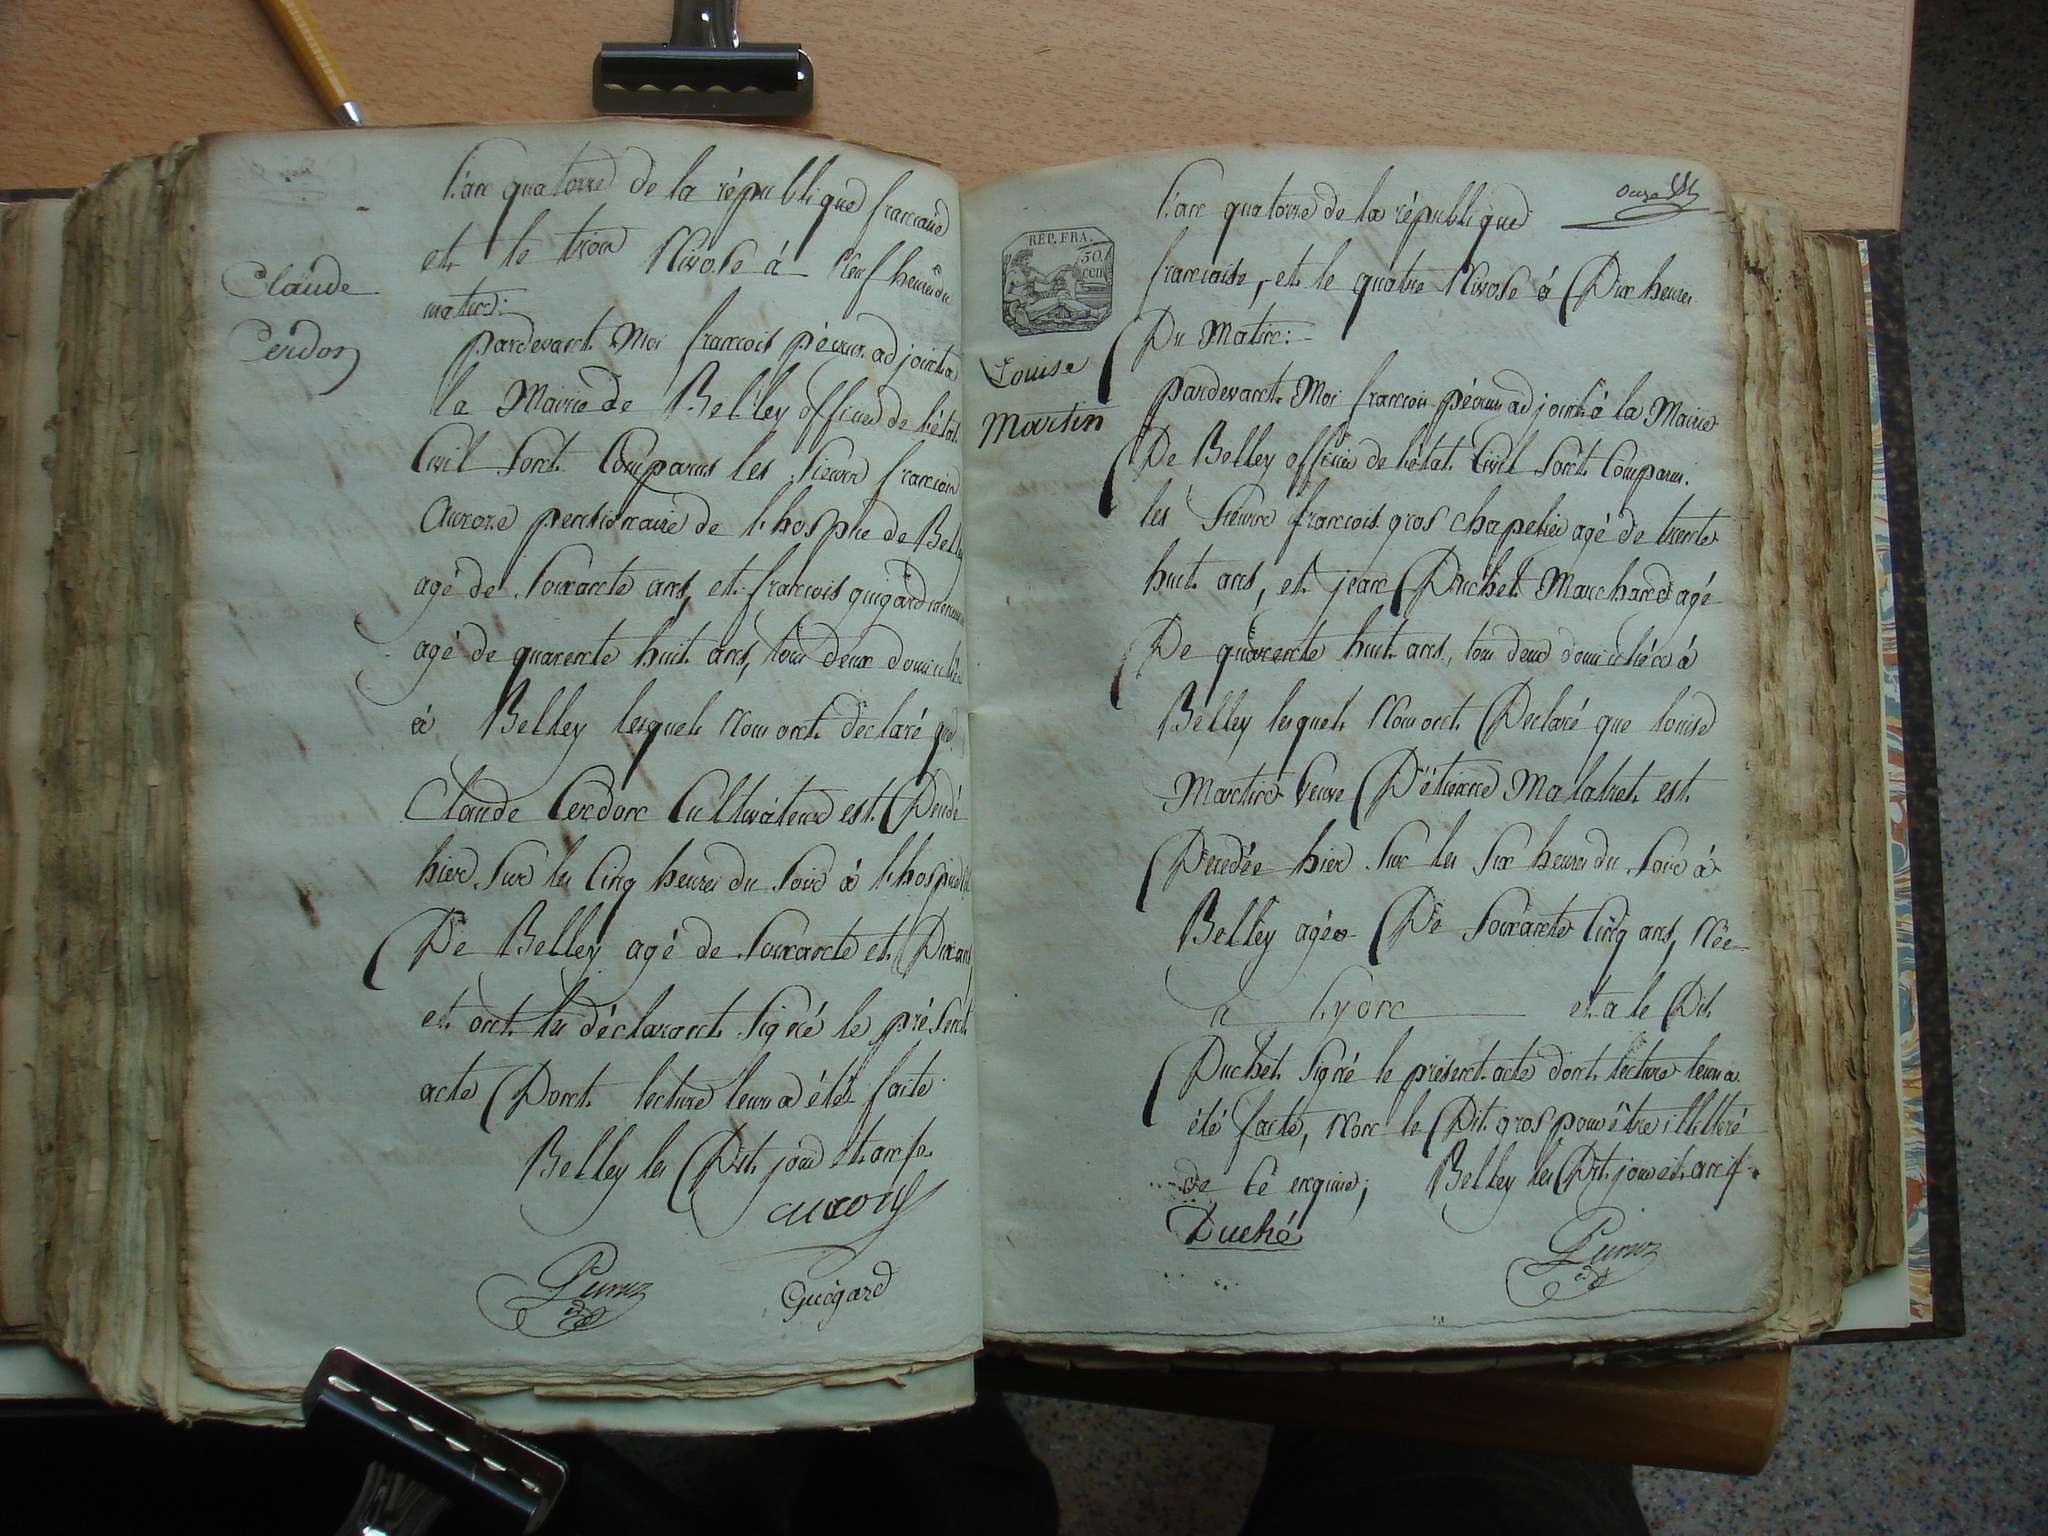 Claude
Cerdon
L'an quatorze de la république francaise
et le trois Nivose à Neuf heures du
matin:
pardevant Moi francois péeurs adjoint a
la Mairie de Belley officier de l'état
Civil sont Comparus les sieurs francois
Aurore pensionnaire de l'hospice de Belley
agé de soixante ans, et francois guigard
agé de quarente huit ans, tous deux domiciliés
à Belley lesquels Nous ont déclaré que
Claude Cerdon Cultivateur est Décédé
hier sur les Cinq heures du soir à l'hospice
De Belley agé de soixante et Dix ans
et ont les déclarant signé le présent
acte Dont lecture leurs a été faite
Belley les Dit jour et an
Guigard
onze
REP. FRA.
50
cen
Louise
Martin
L'an quatorze de la république
francaise, et le quatre Nivose à Dix heures
Du Matin:
pardevant Moi francois adjoint à la Mairie
De Belley officier de l'état Civil sont Comparus
les sieurs francois gros chapelier agé de trente
huit ans, et jean Duchet Marchand agé
De quarente huit ans, tous deux domiciliés à
Belley lesquels Nous ont Déclaré que louise
Martin Veuve D'étienne Malatret est
Décédée hier sur les six heures du soir à
Belley agée De soixante Cinq ans, Née
a Lyon et a le Dit
Duchet signé le présent acte dont lecture leurs a
été faite, Non le Dit gros pour être illitéré
de Ce enquis; Belley les Dit jour et an
Duché